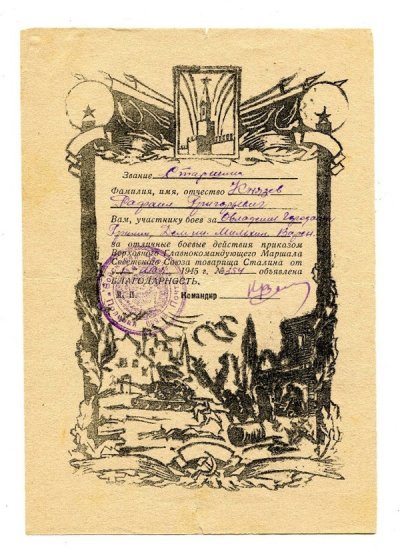 Звание Старшина
Фамилия, имя, отчество Князев
Григорьевич
Вам, участнику боев за Овладение городами
Деммин, Мальхин, Варен
за отличные боевые действия приказом
Верховного Главнокомандующего Маршала
Советского Союза товарища Сталина от
1945 г. № 354 объявлена
БЛАГОДАРНОСТЬ.
М. П. Командир